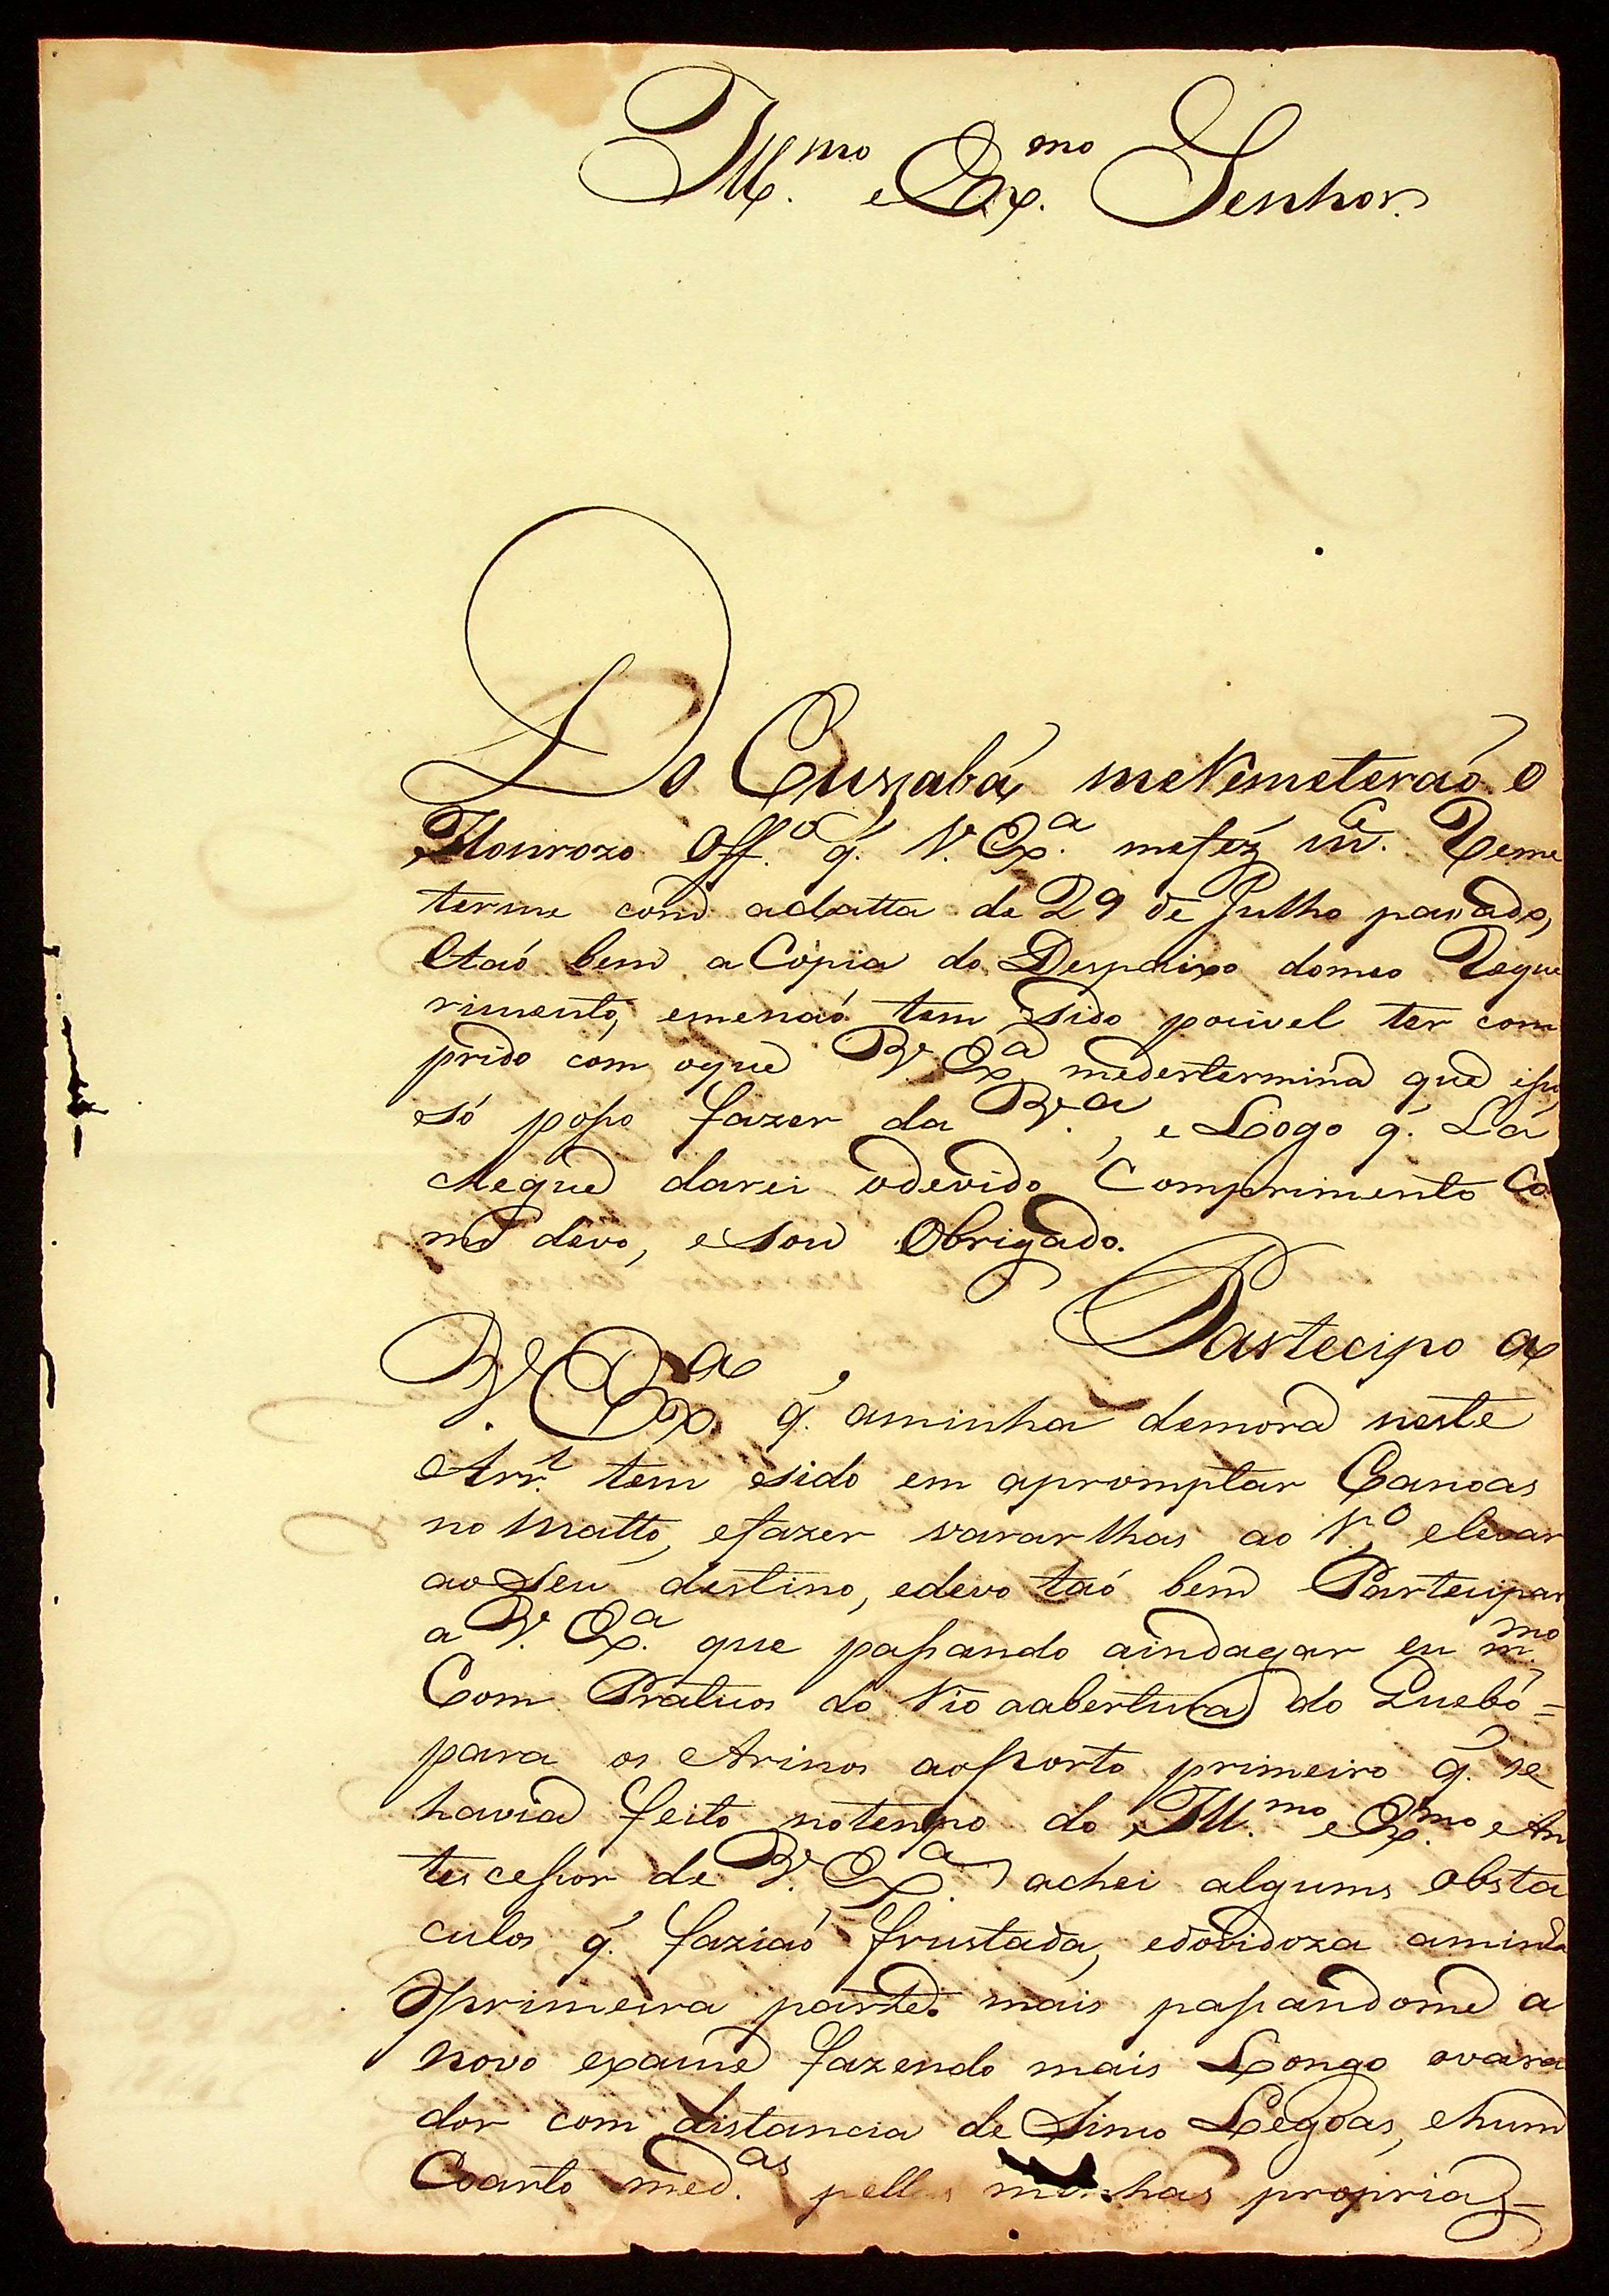 Ill.mo e Ex.mo Senhor.
Do Cuyabá me Remeterão o
Honrozo Off.o q. V. Ex.a mefez m.ce Reme
terme com adatta de 29 de Julho paçado,
etaõ bem a Cópia do Despaixo domeo Reque
rimento, emenaõ tem sido pocivel ter com
prido com oque V. Ex.a medertermina que iso
só poso fazer da V.a, e Logo q. Lá
chegue darei odevido Comprimento Co
mo devo, e sou Obrigado.
Partecipo a
V. Ex.a q. aminha demora neste
Arr.l tem sido em apromptar Canoas
no Matto, efazer vararlhas ao R.o, elevar
ao seu destino, edevo taõ bem Partecipar
a V. Ex.a que pasando aindagar eu m.mo
Com Praticos do Rio aabertura do Quebó =
para os Arinos aoporto primeiro q. se
havia feito notempo do Ill.mo e Ex.mo An
tescesor de V. Ex.a achei alguns obsta
culos q. faziaõ frustada, edovidoza aminha
primeira parte. mais pasandome a
novo exame fazendo mais Longo ovara
dor com distancia de Sinco Legoas, ehum
Coarto med.as pellas minhas proprias